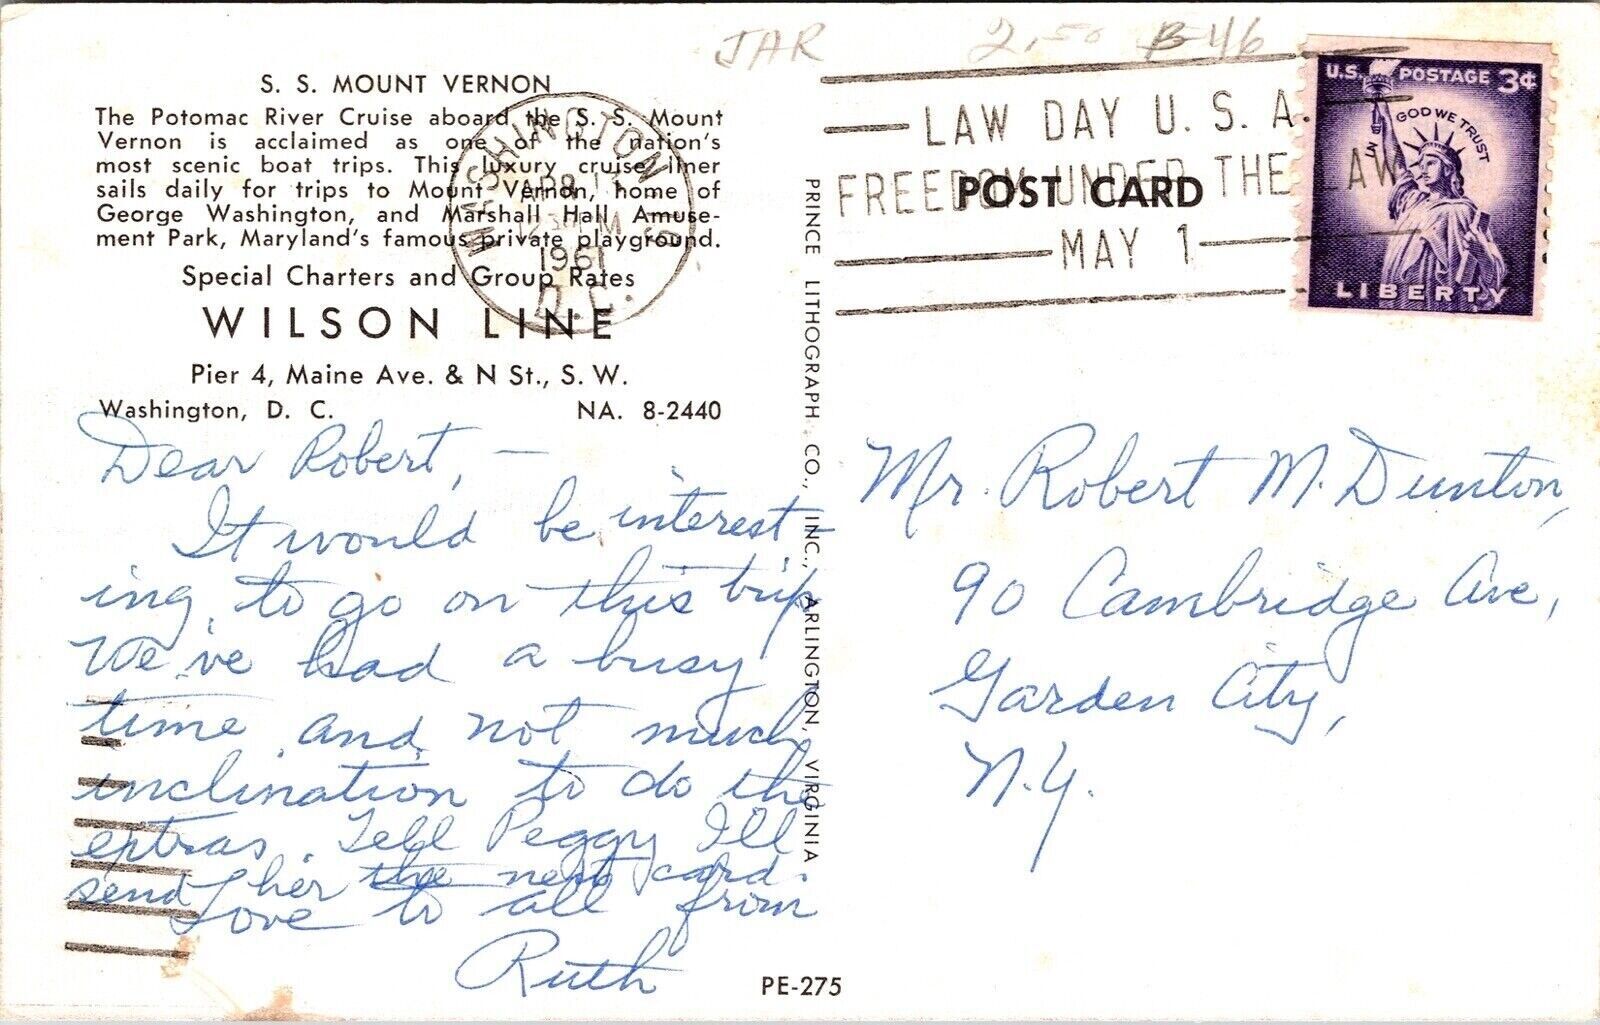 JAR 2.50 B-46
S. S. MOUNT VERNON
The Potomac River Cruise aboard the S. S. Mount
Vernon is acclaimed as one of the nation's
most scenic boat trips. This luxury cruise liner
sails daily for trips to Mount Vernon, home of
George Washington, and Marshall Hall Amuse-
ment Park, Maryland's famous private playground.
Special Charters and Group Rates
WILSON LINE
Pier 4, Maine Ave. & N St., S. W.
Washington, D. C. NA. 8-2440
WASHINGTON
1961
D.C.
Dear Robert, —
It would be interest-
ing to go on this trip
We've had a busy
time and not much
inclination to do the
extras. Tell Peggy I'll
send her the next card.
Love to all from
Ruth
PRINCE LITHOGRAPH CO., INC., ARLINGTON, VIRGINIA
PE-275
LAW DAY U. S. A.
FREEDOM UNDER THE LAW
MAY 1
POST CARD
U.S. POSTAGE 3¢
IN GOD WE TRUST
LIBERTY
Mr. Robert M. Dunton,
90 Cambridge Ave,
Garden City,
N.Y.